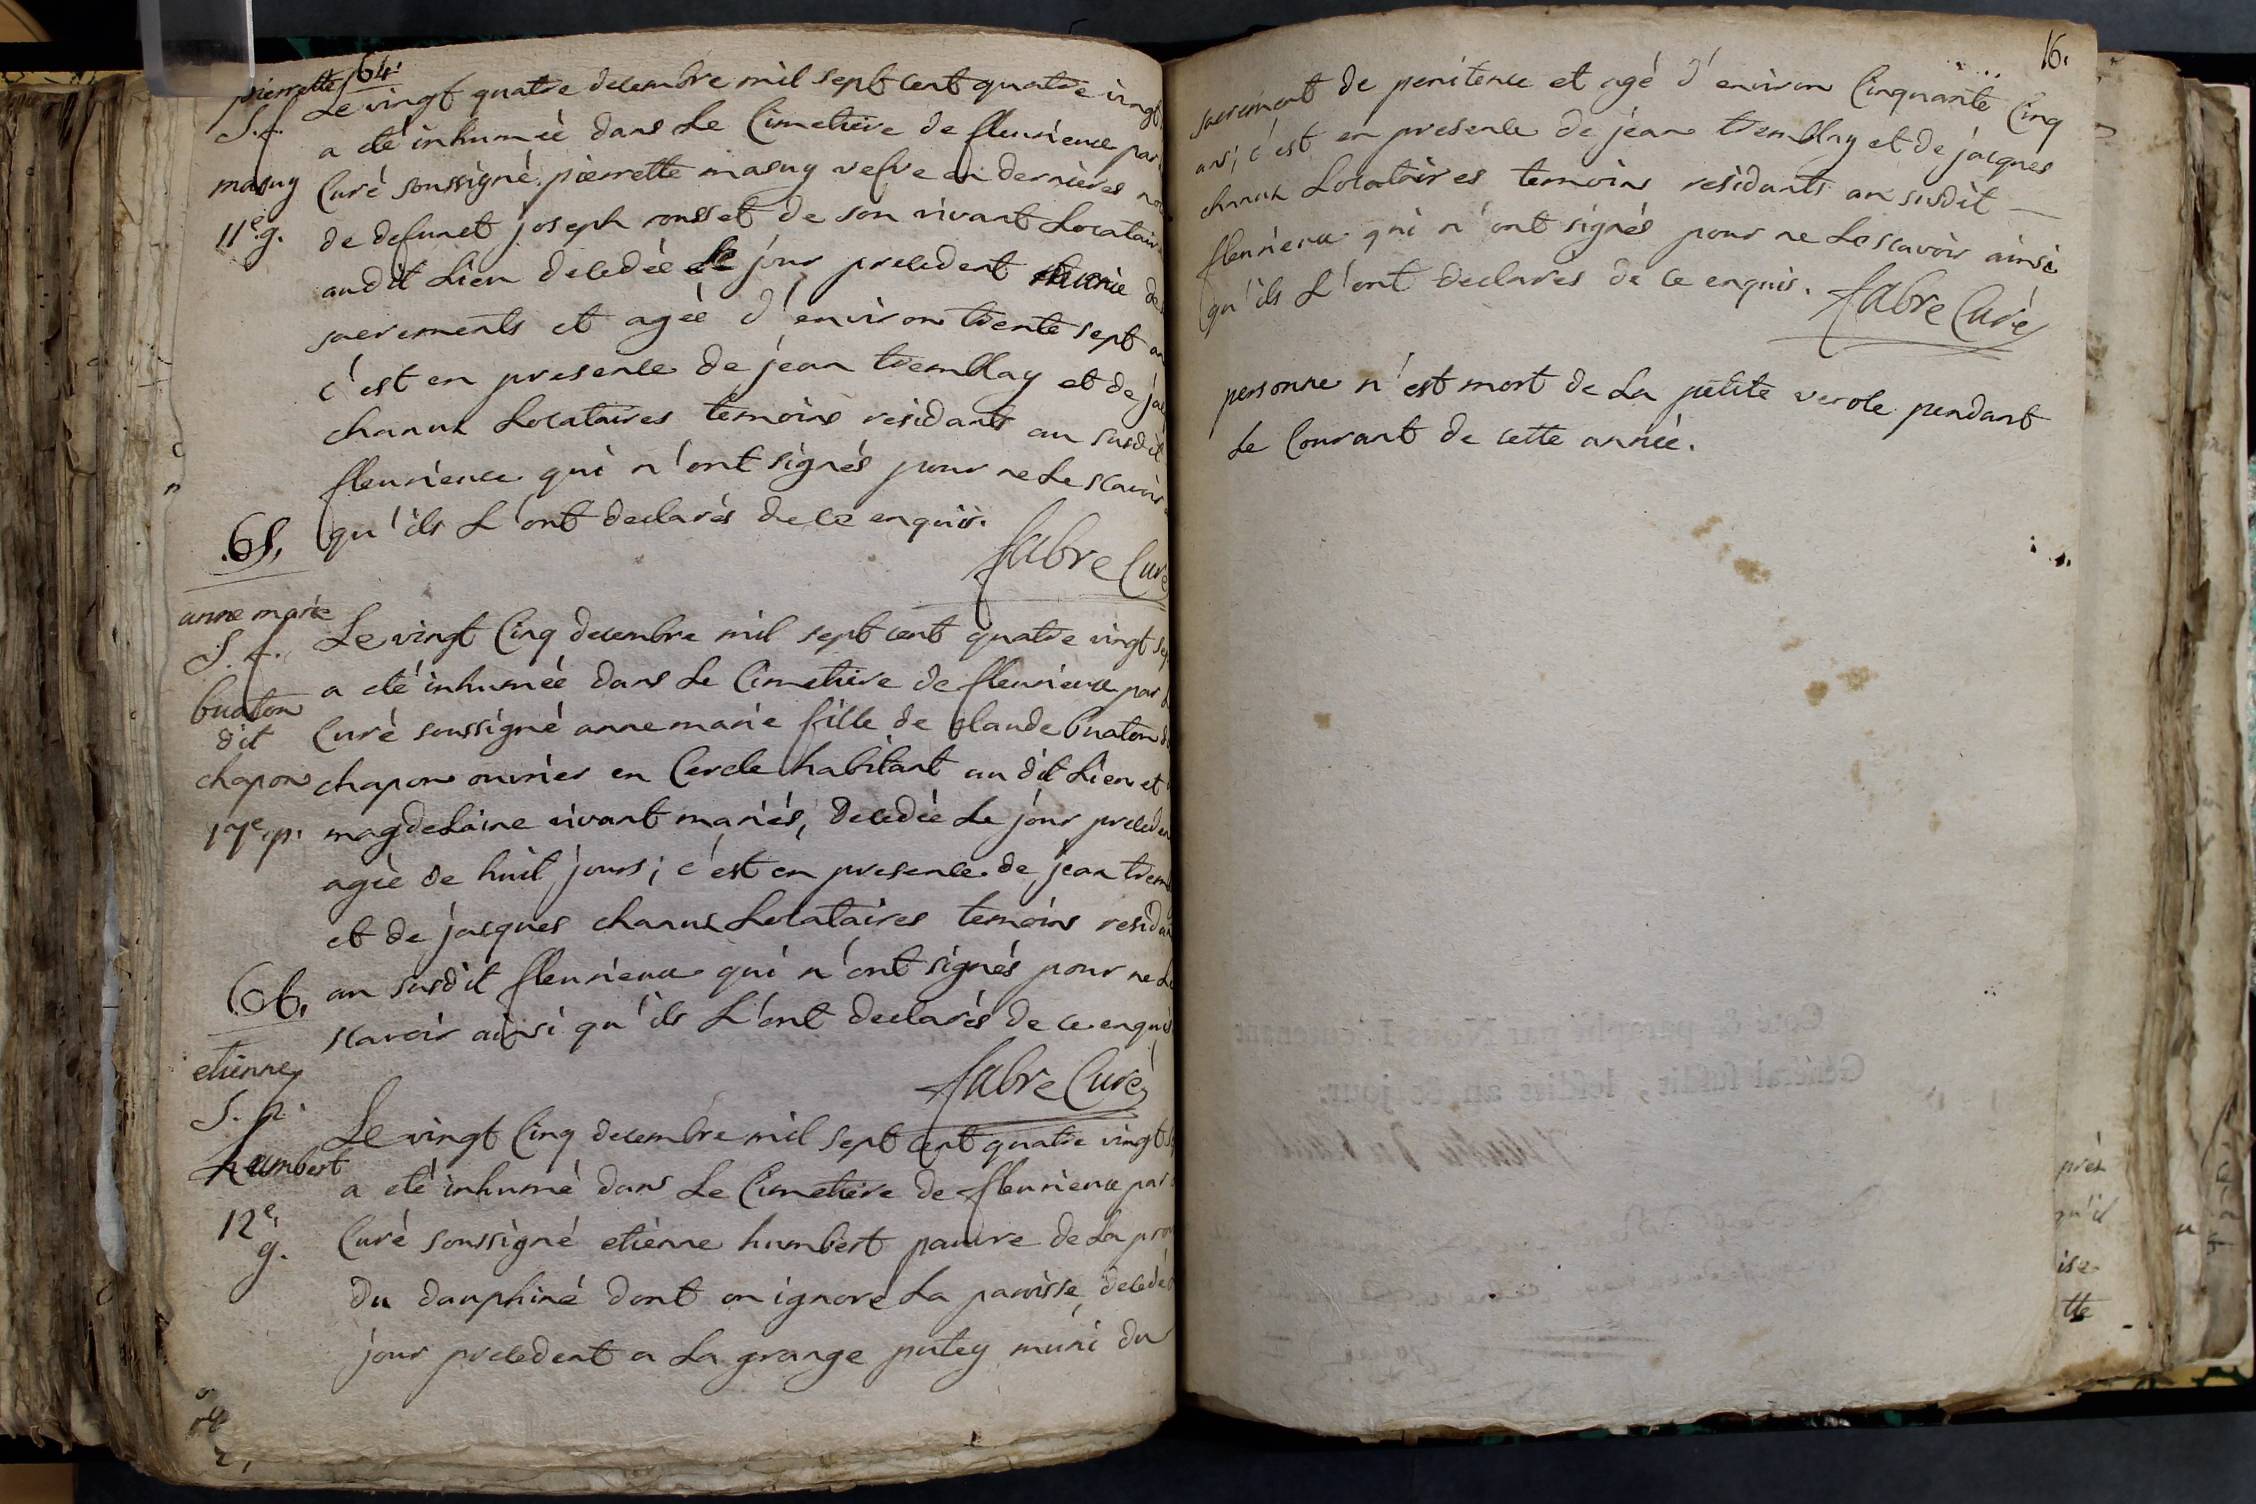 64.
pierrette
S. f.
masuy
11e. g.
Le vingt quatre decembre mil sept cent quatre vingt
a été inhumeé dans Le Cimetiere de fleurieux par
Curé soussigné pierrette masuy vefve en dernieres
de defunct joseph rousset de son vivant Locataire
audit Lieu decedeé Le jour precedent munie des
sacrements et ageé d'environ trente sept an
c'est en presence de jean tremblay et de
chanux Locataires temoins residants au susdit
fleurieux qui n'ont signés pour ne Le scavoir
qu'ils L'ont declarés de ce enquis.
fabre Curé
65,
anne marie
S. f.
buaton
dit
chapon
17e. p.
Le vingt Cinq decembre mil sept cent quatre vingt sep
a eté inhumeé dans Le Cimetiere de fleurieux par L
Curé soussigné anne marie fille de Claude buaton
chapon ouvrier en Cercle habitant au dit Lieu et
magdelaine vivant mariés, decedeé Le jour preceden
ageé de huit jours; c'est en presence de jean trem
et de jacques chanux Locataires temoins residan
au susdit fleurieux qui n'ont signés pour ne Le
scavoir ainsi qu'ils L'ont declarés de ce enquis
fabre Curé
66,
etienne
S. p.
humbert
12e.
g.
Le vingt Cinq decembre mil sept cent quatre vingt
a eté inhumé dans Le Cimetiere de fleurieux par
Curé soussigné etienne humbert pauvre de La prov
du dauphiné dont on ignore La paroisse, decedé
jour precedent a La grange putey muni du
16.
sacrement de penitence et agé d'environ Cinquante Cinq
ans; c'est en presence de jean tremblay et de jacques
chanux Locataires temoins residants au susdit
fleurieux qui n'ont signés pour ne Le scavoir ainsi
qu'ils L'ont declarés de ce enquis.
fabre Curé
personne n'est mort de La petite verole pendant
Le Courant de cette année.
qu'il
ise
tte